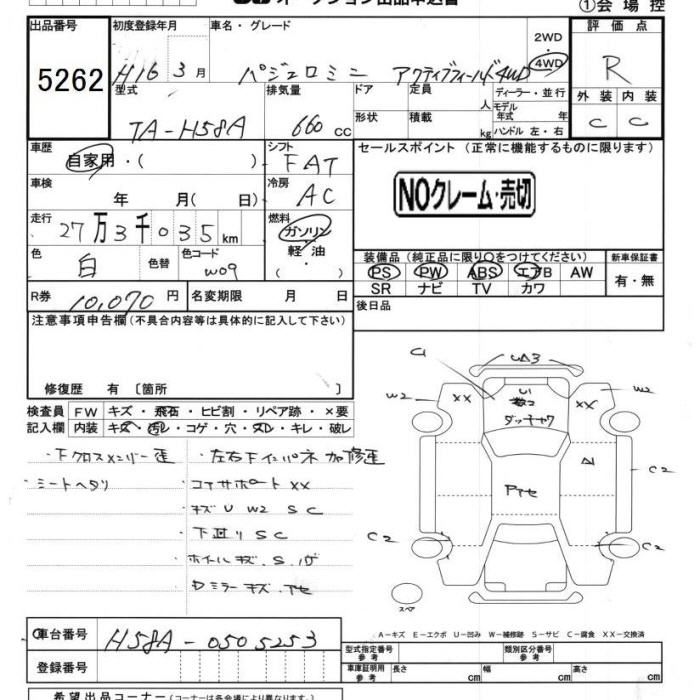 オークション出品申込書
①会場控
出品番号 初度登録年月 車名・グレード 2WD ・ 4WD 評価点
5262 H16 3月 パジェロミニ アクティブフィールド4WD R
型式 排気量 ドア 定員 人 ディーラー・並行 外装 内装
TA-H58A 660 cc 形状 積載 kg モデル年式 年 ハンドル 左・右 C C
車歴 自家用・( ) シフト FAT セールスポイント (正常に機能するものに限ります)
車検 年 月(日) 冷房 AC
NOクレーム・売切
走行 27万3千035km 燃料 ガソリン・軽油
色 白 色替 色コード W09
装備品(純正品に限り〇をつけてください) 新車保証書
PS PW ABS エアB AW 有・無
SR ナビ TV カワ
R券 10,070円 名変期限 月 日 後日品
注意事項申告欄(不具合内容等は具体的に記入して下さい)
修復歴 有 〔箇所 〕
検査員 FW キズ・飛石・ヒビ割・リペア跡・×要
記入欄 内装 キズ・汚レ・コゲ・穴・スレ・キレ・破レ
・下クロスメンバー歪 ・左右下インパネ加修歪
・シートヘタリ ・コアサポートXX
・キズ U W2 S C
・下廻り S C
・ホイールキズ.S.
・Dミラーキズ.
C1 UA3
W2 XX U1 XX W2
A1
C2
C2 C2
スペア
A-キズ E-エクボ U-凹み W-補修跡 S-サビ C-腐食 XX-交換済
車台番号 H58A-0505253
型式指定番号 参考 類別区分番号 参考
登録番号 車庫証明用 参考 長さ cm 幅 cm 高さ cm
希望出品コーナー(コーナーは各会場により異なります。)